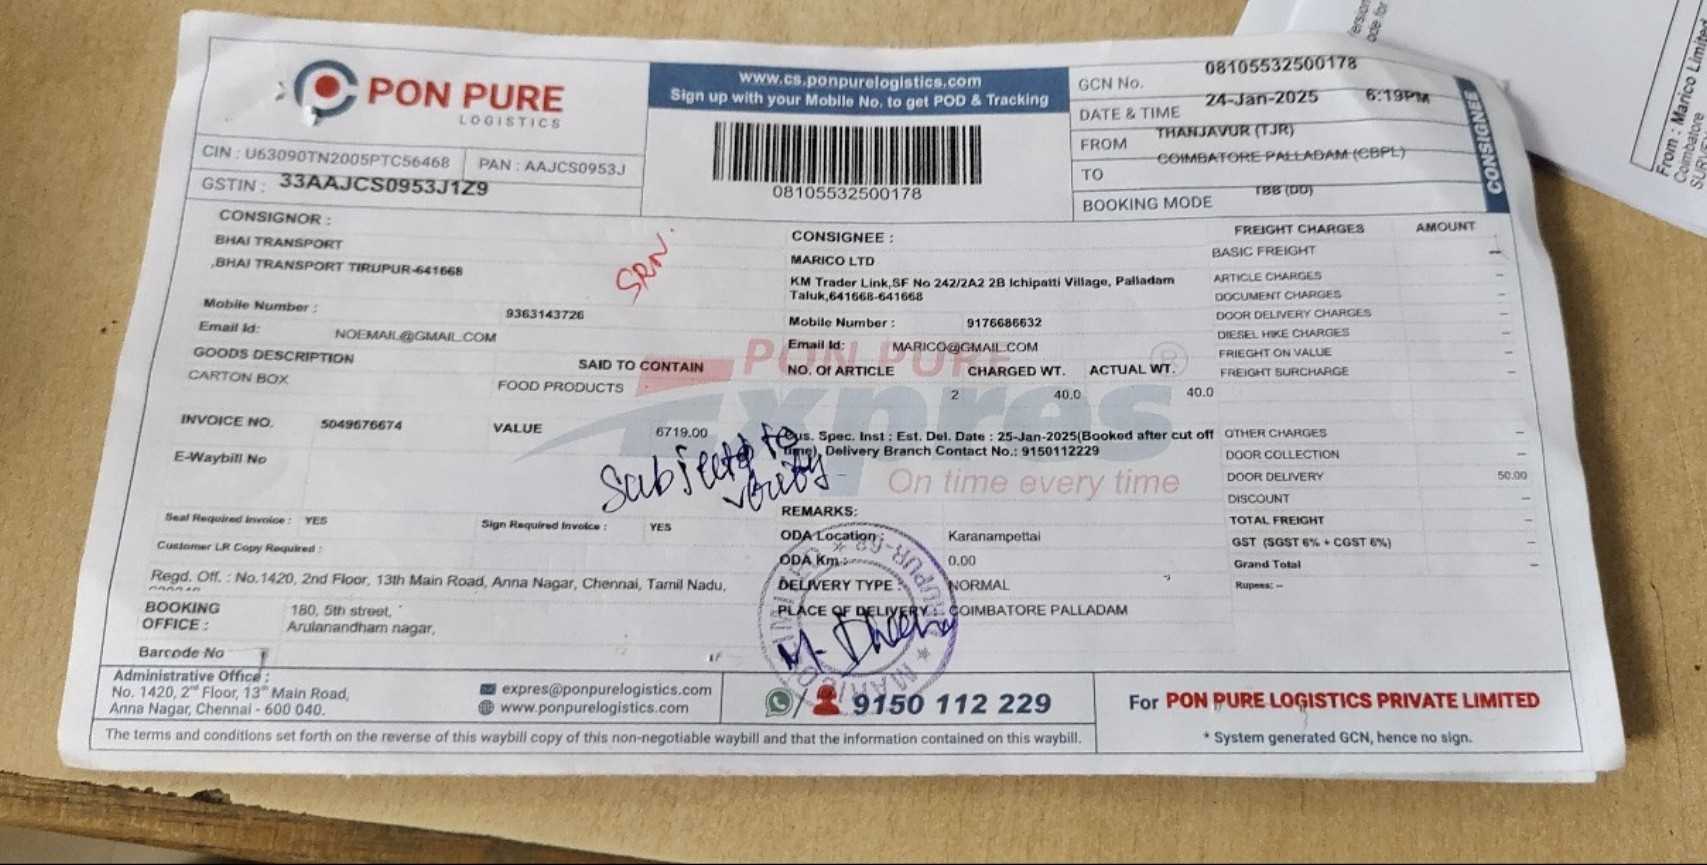 PON PURE
LOGISTICS
www.cs.ponpurelogistics.com
Sign up with your Mobile No. to get POD & Tracking
08105532500178
GCN No. 08105532500178
DATE & TIME 24-Jan-2025 6:19PM
FROM THANJAVUR (TJR)
TO COIMBATORE PALLADAM (CBPL)
BOOKING MODE TBB (DD)
CONSIGNEE
CIN : U63090TN2005PTC56468 PAN : AAJCS0953J
GSTIN : 33AAJCS0953J1Z9
CONSIGNOR :
BHAI TRANSPORT
,BHAI TRANSPORT TIRUPUR-641668
SRN.
Mobile Number : 9363143726
Email Id: NOEMAIL@GMAIL.COM
CONSIGNEE :
MARICO LTD
KM Trader Link,SF No 242/2A2 2B Ichipatti Village, Palladam
Taluk,641668-641668
Mobile Number : 9176686632
Email Id: MARICO@GMAIL.COM
GOODS DESCRIPTION SAID TO CONTAIN
CARTON BOX FOOD PRODUCTS
NO. Of ARTICLE CHARGED WT. ACTUAL WT.
2 40.0 40.0
PON PURE
Expres
On time every time
INVOICE NO. 5049676674 VALUE 6719.00
E-Waybill No
Cus. Spec. Inst : Est. Del. Date : 25-Jan-2025(Booked after cut off
time), Delivery Branch Contact No.: 9150112229
Subject to
verify
Seal Required Invoice : YES Sign Required Invoice : YES
Customer LR Copy Required :
Regd. Off. : No.1420, 2nd Floor, 13th Main Road, Anna Nagar, Chennai, Tamil Nadu,
BOOKING
OFFICE :
180, 5th street,
Arulanandham nagar,
Barcode No
REMARKS:
ODA Location : Karanampettai
ODA Km : 0.00
DELIVERY TYPE : NORMAL
PLACE OF DELIVERY : COIMBATORE PALLADAM
FREIGHT CHARGES AMOUNT
BASIC FREIGHT –
ARTICLE CHARGES –
DOCUMENT CHARGES –
DOOR DELIVERY CHARGES –
DIESEL HIKE CHARGES –
FRIEGHT ON VALUE –
FREIGHT SURCHARGE –
OTHER CHARGES –
DOOR COLLECTION –
DOOR DELIVERY 50.00
DISCOUNT –
TOTAL FREIGHT –
GST (SGST 6% + CGST 6%) –
Grand Total –
Rupees: –
Administrative Office :
No. 1420, 2nd Floor, 13th Main Road,
Anna Nagar, Chennai - 600 040.
expres@ponpurelogistics.com
www.ponpurelogistics.com
9150 112 229
For PON PURE LOGISTICS PRIVATE LIMITED
* System generated GCN, hence no sign.
The terms and conditions set forth on the reverse of this waybill copy of this non-negotiable waybill and that the information contained on this waybill.
From : Marico Limited
Coimbatore